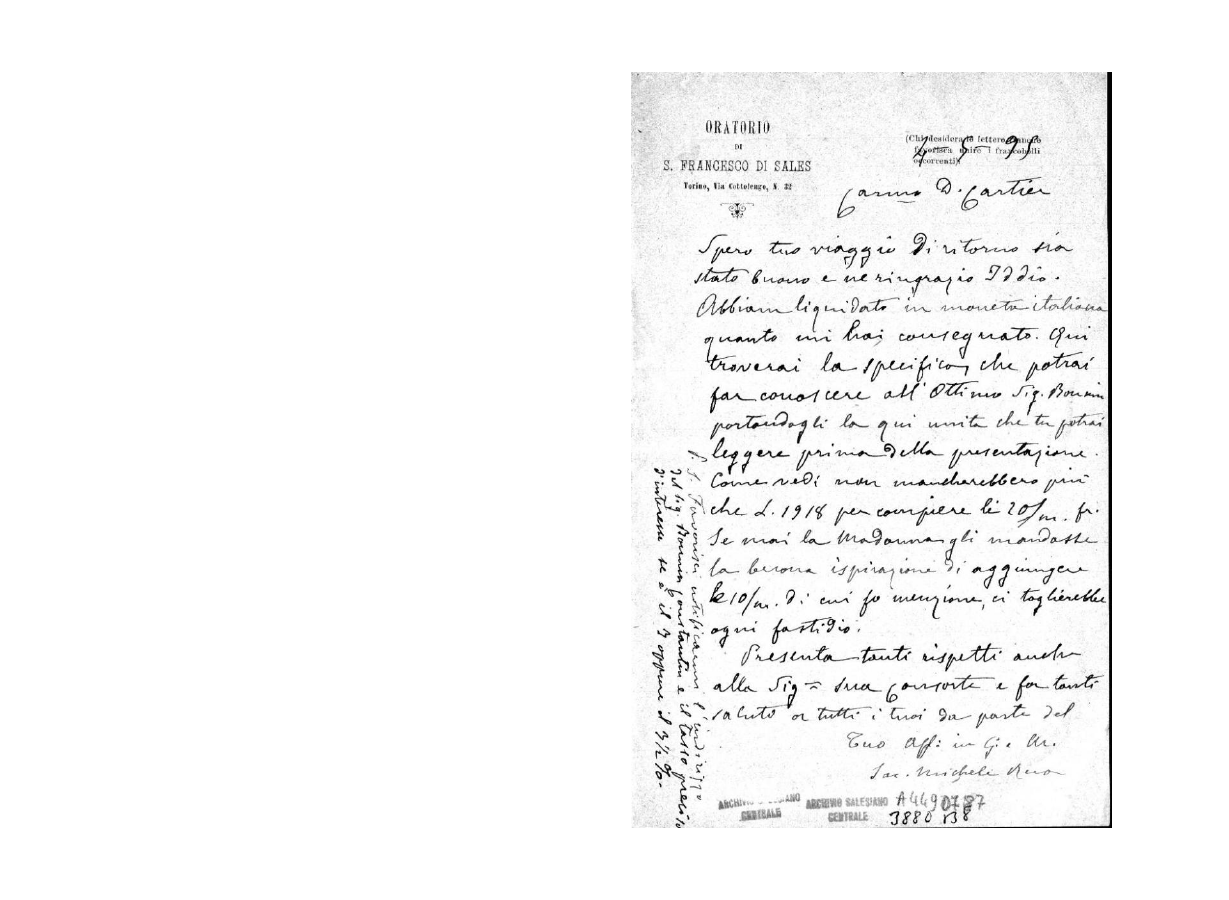 ORATORIO
DI
S. FRANCESCO DI SALES
Torino, Via Cottolengo, N. 32
(Chi desidera le lettere franche
favorisca unire i francobolli
occorrenti)
4-5-95
Carmo D. Cartier
Spero tuo viaggio di ritorno sia
stato buono e ne ringrazio Iddio.
Abbiam liquidato in moneta italiana
quanto mi hai consegnato. Qui
troverai la specifica, che potrai
far conoscere all'Ottimo Sig. Bonnin
portandogli la qui unita che tu potrai
leggere prima della presentazione.
Come vedi non mancherebbero più
che L. 1918 per compiere le 20/m. fr.
Se mai la Madonna gli mandasse
la buona ispirazione di aggiungere
le 10/m. di cui fo menzione, ci toglierebbe
ogni fastidio.
Presenta tanti rispetti anche
alla Sig.ra sua Consorte e fa tanti
saluti a tutti i tuoi da parte del
Tuo Aff: in G. e M.
Sac. Michele Rua
P. S. Favorisci notificarmi l'indirizzo
del Sig. Bonnin Constantin e il tasso preciso
d'interesse se è il 3 oppure il 3 1/2 %.
ARCHIVIO SALESIANO
CENTRALE
ARCHIVIO SALESIANO
CENTRALE
A4490787
3880